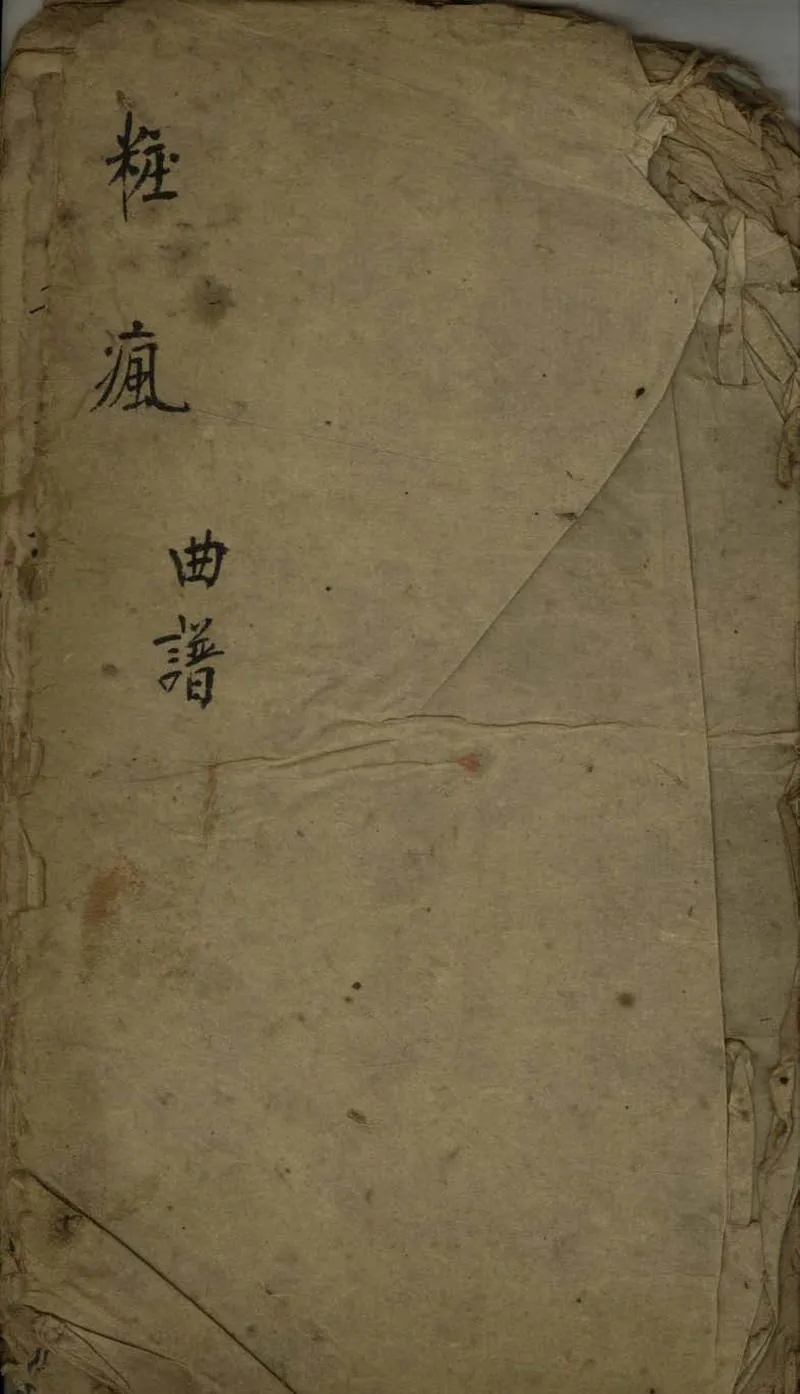 粧瘋
曲譜